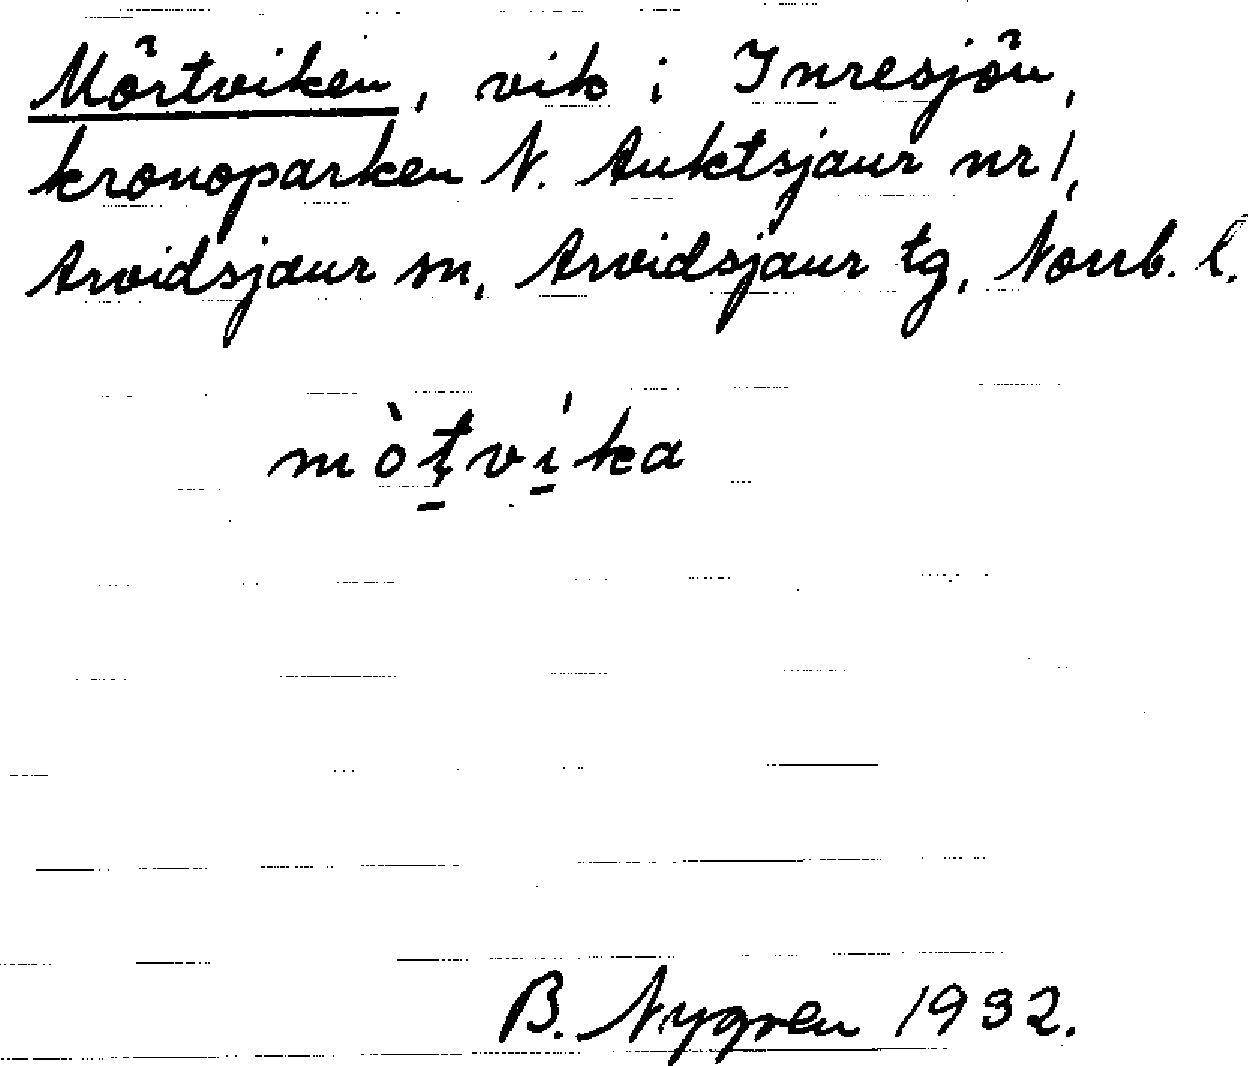 Mörtviken, vik i Inresjön,
kronoparken N. Auktsjaur nr 1,
Arvidsjaur sn, Arvidsjaur tg, Norrb. l.
mòt̠ví̠ka
B. Nygren 1932.